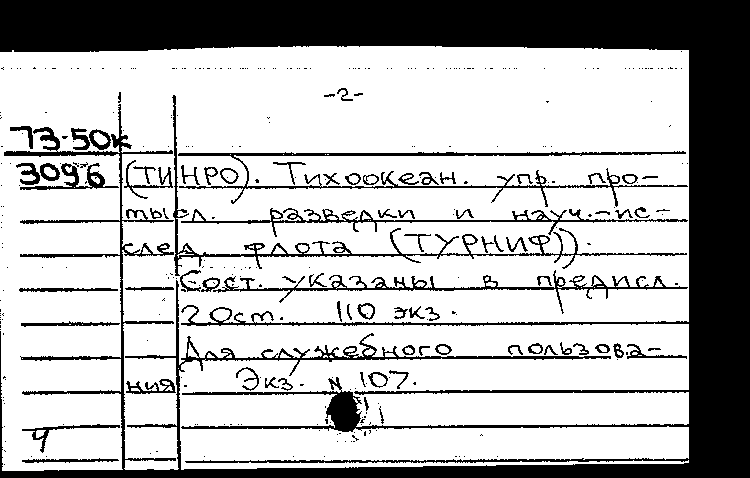 -2-
73-50к
3096 (ТИНРО). Тихоокеан. упр. про-
мысл. разведки и науч.-ис-
след. флота (ТУРНИФ)).
Сост. указаны в предисл.
20 см. 110 экз.
Для служебного пользова-
ния. Экз. N 107.
Ч